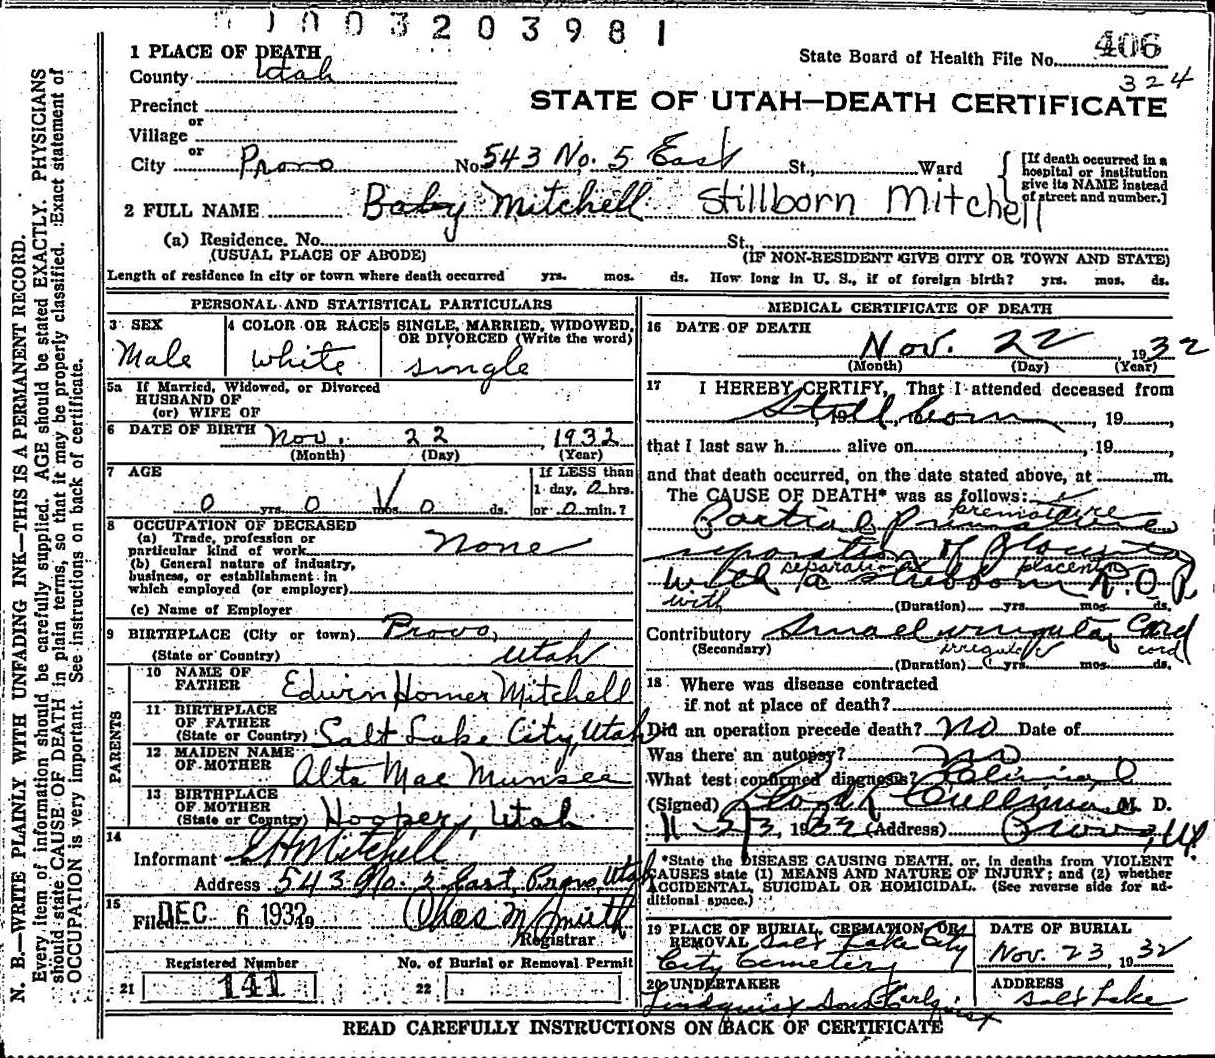 003203981
1 PLACE OF DEATH
State Board of Health File No. 406
County Utah
324
Precinct
STATE OF UTAH—DEATH CERTIFICATE
or
Village
or
City Provo No. 543 No. 5 East St., Ward
[If death occurred in a hospital or institution give its NAME instead of street and number.]
2 FULL NAME Baby Mitchell Stillborn Mitchell
(a) Residence. No. St.,
(USUAL PLACE OF ABODE) (IF NON-RESIDENT GIVE CITY OR TOWN AND STATE)
Length of residence in city or town where death occurred yrs. mos. ds. How long in U. S., if of foreign birth? yrs. mos. ds.
PERSONAL AND STATISTICAL PARTICULARS
3 SEX
Male
4 COLOR OR RACE
white
5 SINGLE, MARRIED, WIDOWED, OR DIVORCED (Write the word)
single
5a If Married, Widowed, or Divorced
HUSBAND OF
(or) WIFE OF
6 DATE OF BIRTH Nov. 22, 1932
(Month) (Day) (Year)
7 AGE
0 yrs. 0 mos. 0 ds.
If LESS than
1 day, 0 hrs.
or 0 min.?
8 OCCUPATION OF DECEASED
(a) Trade, profession or
particular kind of work none
(b) General nature of industry,
business, or establishment in
which employed (or employer)
(c) Name of Employer
9 BIRTHPLACE (City or town) Provo,
(State or Country) Utah
PARENTS
10 NAME OF
FATHER Edwin Homer Mitchell
11 BIRTHPLACE
OF FATHER
(State or Country) Salt Lake City, Utah
12 MAIDEN NAME
OF MOTHER Alta Mae Munsee
13 BIRTHPLACE
OF MOTHER
(State or Country) Hooper, Utah
14
Informant EH Mitchell
Address 543 No. 5 East, Provo, Utah
15
Filed DEC 6 1932 19 Chas M Smith
Registrar
Registered Number No. of Burial or Removal Permit
21 141 22
MEDICAL CERTIFICATE OF DEATH
16 DATE OF DEATH
Nov. 22, 1932
(Month) (Day) (Year)
17 I HEREBY CERTIFY, That I attended deceased from
Stillborn, 19
that I last saw h alive on, 19
and that death occurred, on the date stated above, at m.
The CAUSE OF DEATH* was as follows:
premature
Partial Premature
separation of Placenta
separation placenta
with a stubborn R.O.P.
with (Duration) yrs. mos. ds.
Contributory Small irregular Cord
(Secondary) irregular cord
(Duration) yrs. mos. ds.
18 Where was disease contracted
if not at place of death?
Did an operation precede death? No Date of
Was there an autopsy? no
What test confirmed diagnosis? Clinical
(Signed) Lloyd Cullimore M. D.
1932 (Address) Provo, Ut
*State the DISEASE CAUSING DEATH, or, in deaths from VIOLENT
CAUSES state (1) MEANS AND NATURE OF INJURY; and (2) whether
ACCIDENTAL, SUICIDAL OR HOMICIDAL. (See reverse side for ad-
ditional space.)
19 PLACE OF BURIAL, CREMATION, OR
REMOVAL Salt Lake City
City Cemetery
DATE OF BURIAL
Nov. 23, 1932
20 UNDERTAKER
Lindquist Sons
ADDRESS
Salt Lake
READ CAREFULLY INSTRUCTIONS ON BACK OF CERTIFICATE
N. B.—WRITE PLAINLY WITH UNFADING INK—THIS IS A PERMANENT RECORD.
Every item of information should be carefully supplied. AGE should be stated EXACTLY. PHYSICIANS
should state CAUSE OF DEATH in plain terms, so that it may be properly classified. Exact statement of
OCCUPATION is very important. See instructions on back of certificate.